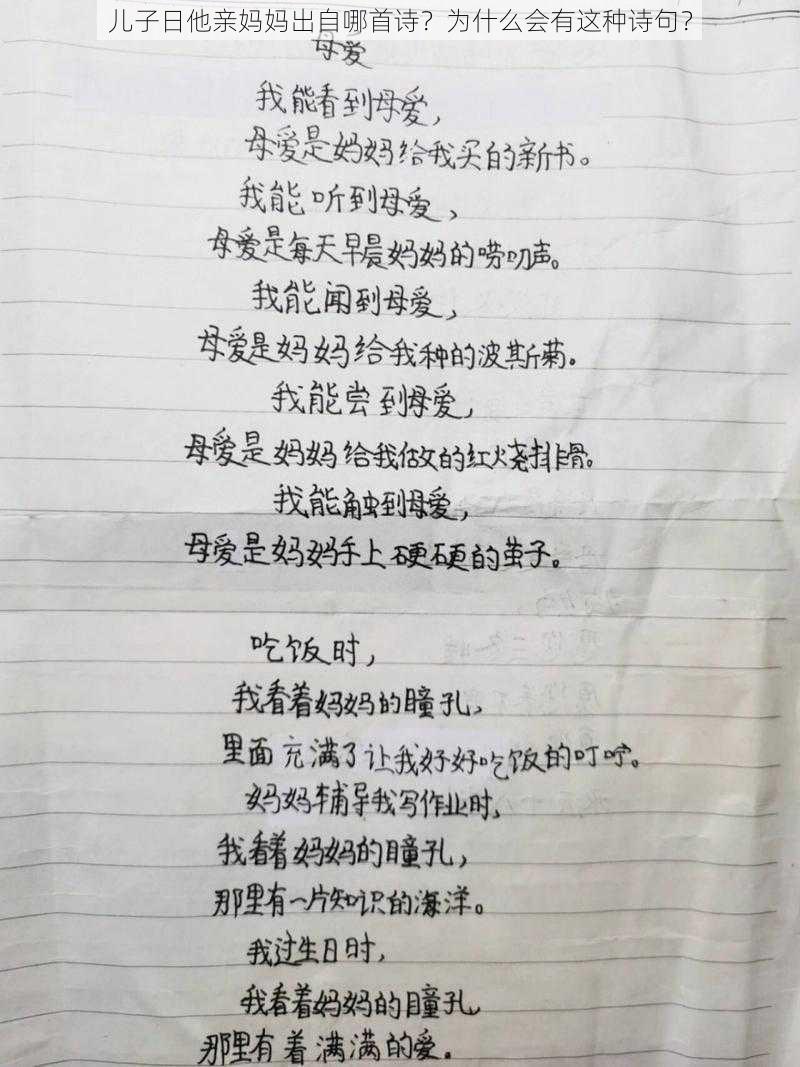 儿子日他亲妈妈出自哪首诗？为什么会有这种诗句？
母爱
我能看到母爱，
母爱是妈妈给我买的新书。
我能听到母爱，
母爱是每天早晨妈妈的唠叨声。
我能闻到母爱，
母爱是妈妈给我种的波斯菊。
我能尝到母爱，
母爱是妈妈给我做的红火烧排骨。
我能触到母爱，
母爱是妈妈手上硬硬的茧子。
吃饭时，
我看着妈妈的瞳孔，
里面充满了让我好好吃饭的叮咛。
妈妈辅导我写作业时，
我看着妈妈的瞳孔，
那里有一片知识的海洋。
我过生日时，
我看着妈妈的瞳孔，
那里有着满满的爱。